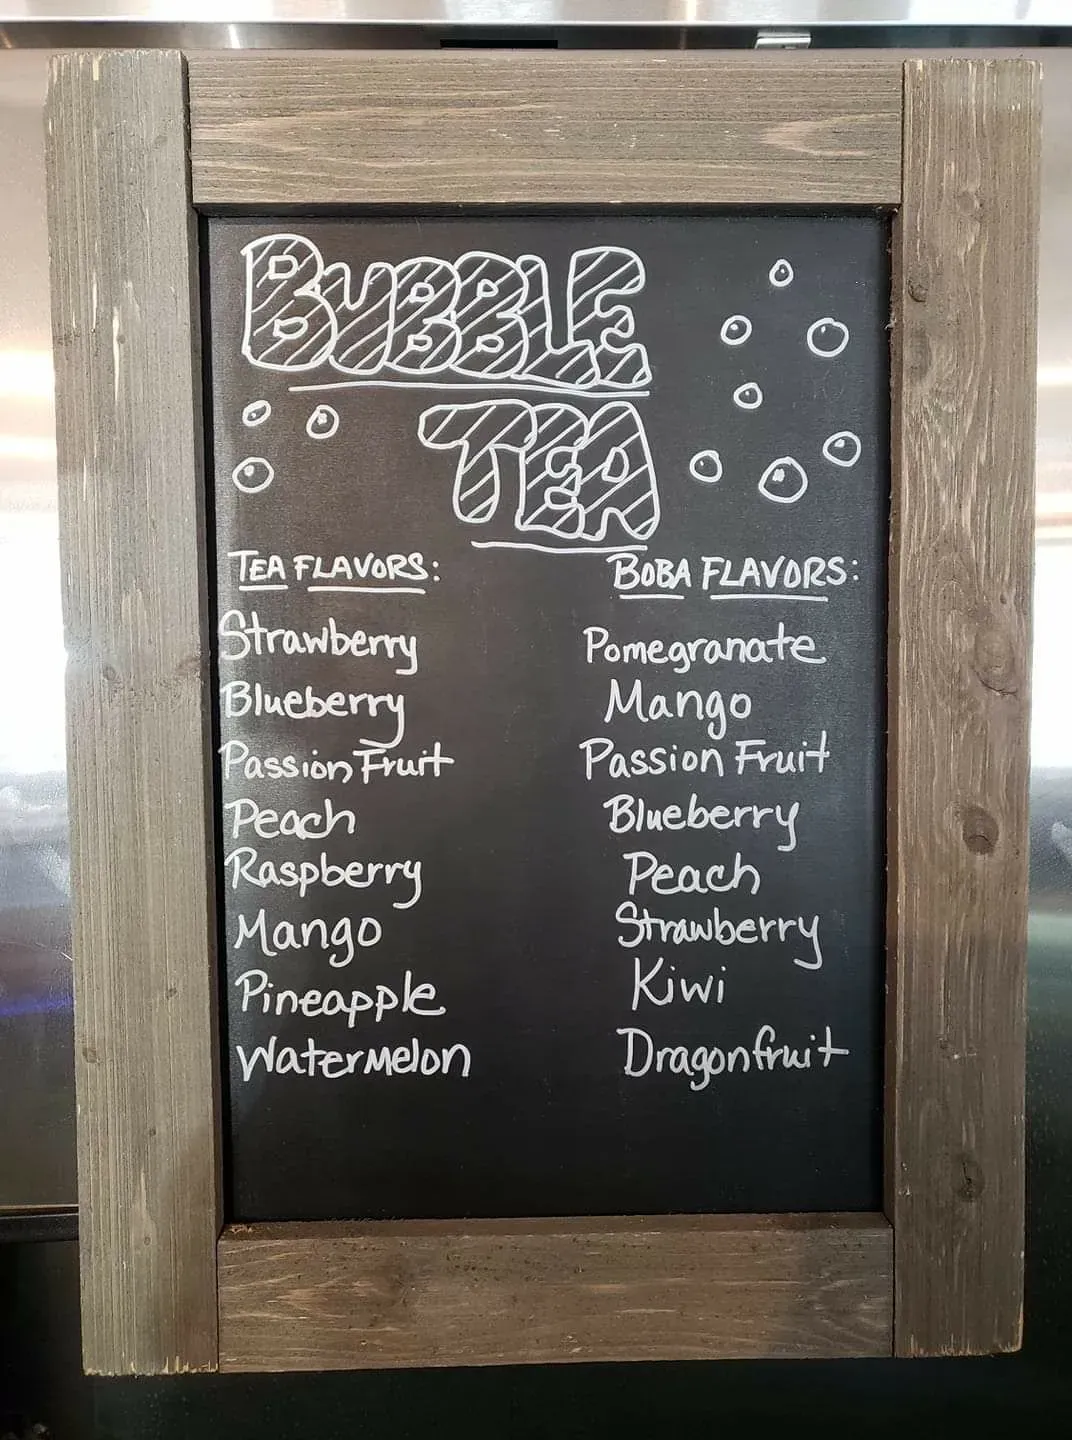 BUBBLE
TEA
TEA FLAVORS:
Strawberry
Blueberry
Passion Fruit
Peach
Raspberry
Mango
Pineapple
Watermelon
BOBA FLAVORS:
Pomegranate
Mango
Passion Fruit
Blueberry
Peach
Strawberry
Kiwi
Dragonfruit